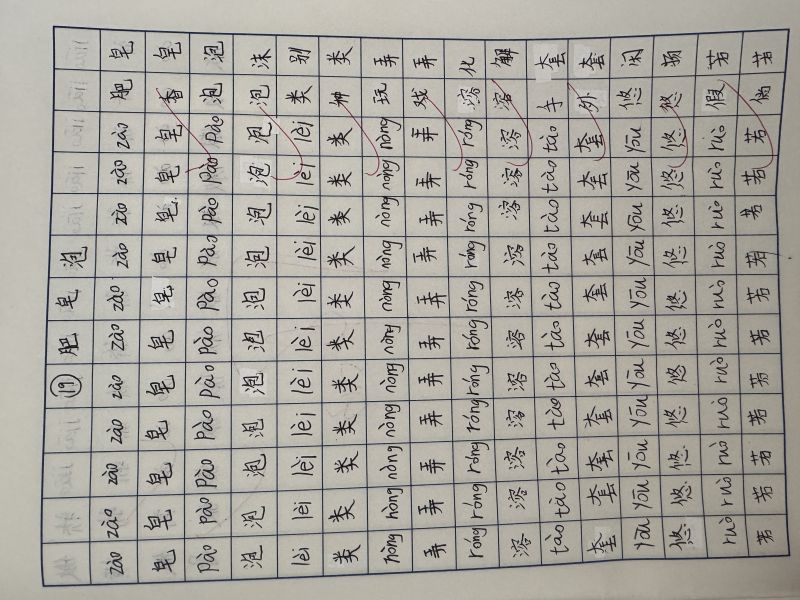 ⑲ 肥 皂 泡
zào zào zào zào zào zào zào zào zào zào zào 肥 皂
皂 皂 皂 皂 皂 皂 皂 皂 皂 皂 皂 香 皂
Pào Pào Pào Pào Pào Pào Pào Pào Pào Pào Pào 泡 泡
泡 泡 泡 泡 泡 泡 泡 泡 泡 泡 泡 泡 沫
lèi lèi lèi lèi lèi lèi lèi lèi lèi lèi lèi 类 别
类 类 类 类 类 类 类 类 类 类 类 种 类
nòng nòng nòng nòng nòng nòng nòng nòng nòng nòng nòng 玩 弄
弄 弄 弄 弄 弄 弄 弄 弄 弄 弄 弄 戏 弄
róng róng róng róng róng róng róng róng róng róng róng 溶 化
溶 溶 溶 溶 溶 溶 溶 溶 溶 溶 溶 溶 解
tào tào tào tào tào tào tào tào tào tào tào 手 套
套 套 套 套 套 套 套 套 套 套 套 外 套
Yōu Yōu Yōu Yōu Yōu Yōu Yōu Yōu Yōu Yōu Yōu 悠 闲
悠 悠 悠 悠 悠 悠 悠 悠 悠 悠 悠 悠
ruò ruò ruò ruò ruò ruò ruò ruò ruò ruò ruò 假 若
若 若 若 若 若 若 若 若 若 若 若 倘 若